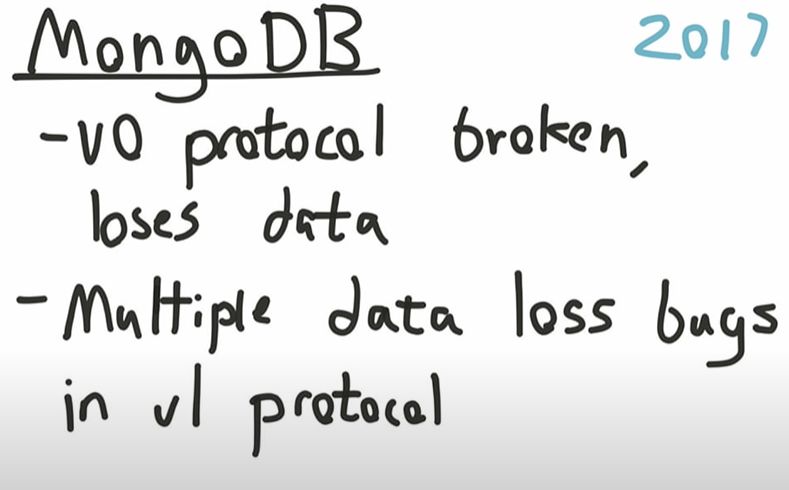 MongoDB 2017
-v0 protocal broken,
loses data
- Multiple data loss bugs
in v1 protocal